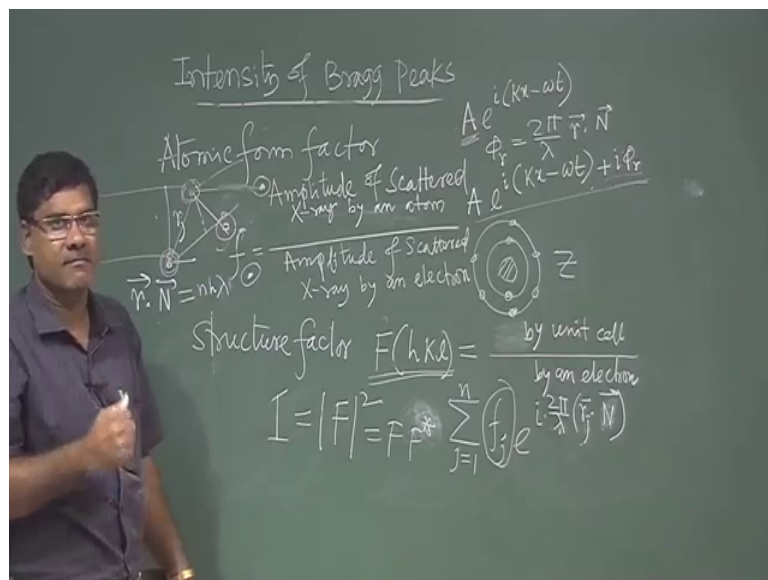 Intensity of Bragg Peaks
A e^{i(Kx-ωt)}
Φ_r = 2π/λ \vec{r}.\vec{N}
A e^{i(Kx-ωt)+iΦ_r}
Atomic form factor
f = Amplitude of Scattered X-ray by an atom / Amplitude of Scattered X-ray by an electron
Z
\vec{r}.\vec{N} = nhλ
Structure factor F(hKl) = by unit cell / by an electron
I = |F|^2 = F F^* \sum_{j=1}^{n} f_j e^{i 2π/λ (\vec{r}_j.\vec{N})}